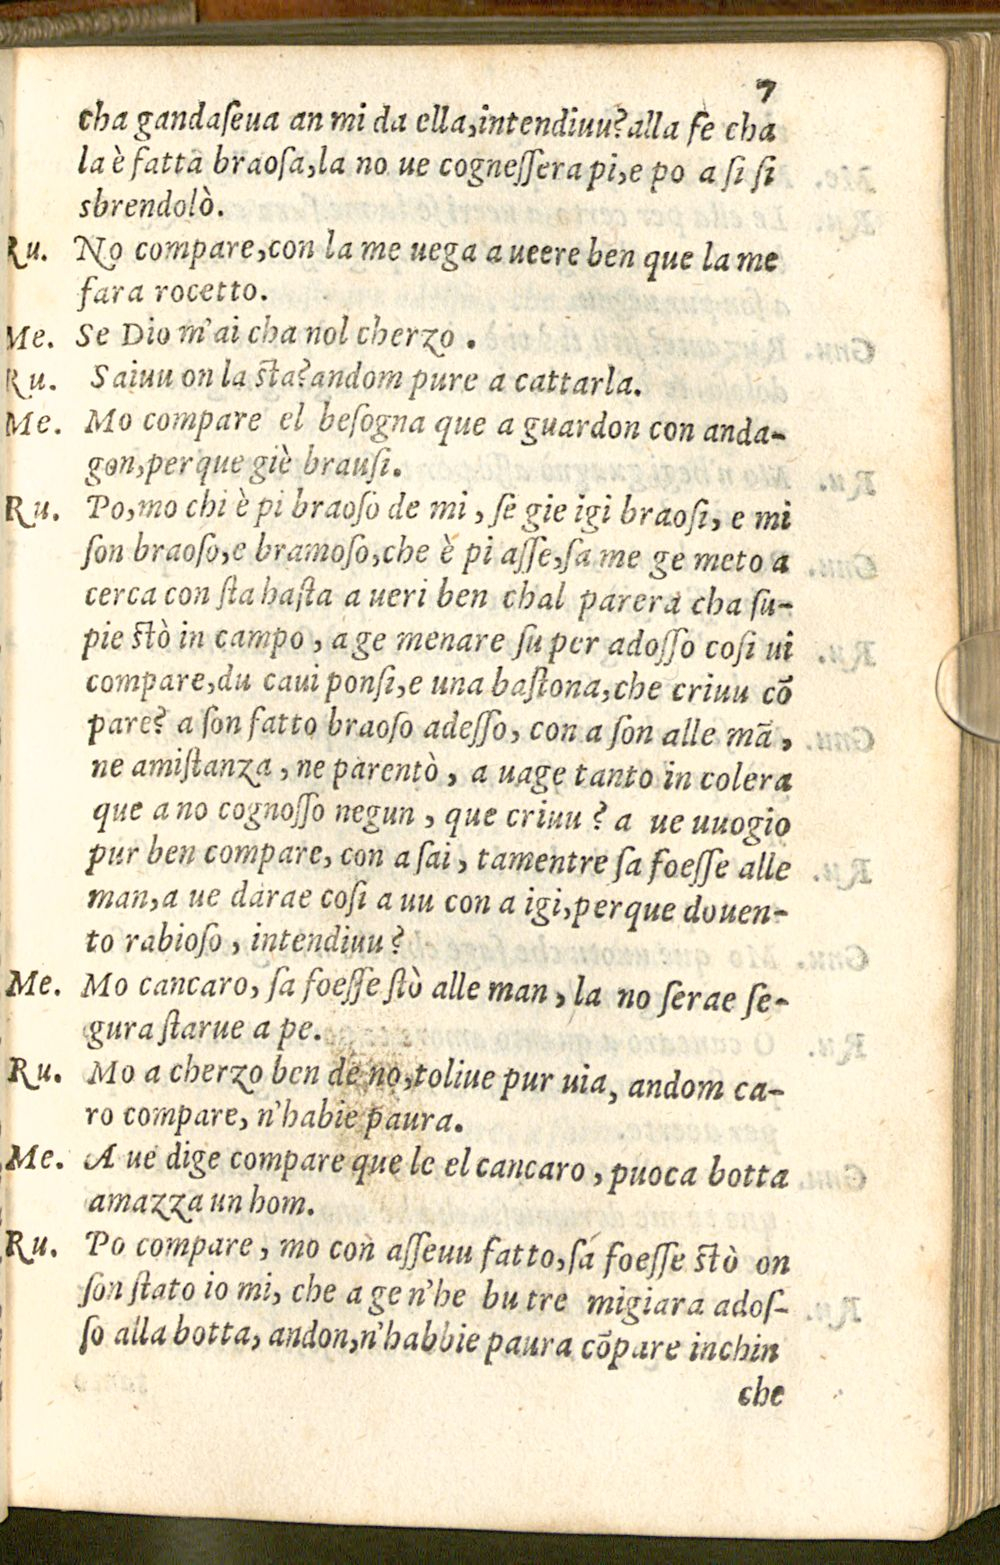 7
cha gandaſeua an mi da ella,intendiuu? alla fe cha
la è fatta braoſa,la no ue cogneſſera pi,e po a ſi ſi
sbrendolò.
Ru. No compare,con la me uega a ueere ben que la me
fara rocetto.
Me. Se Dio m'ai cha nol cherzo.
Ru. Saiuu on la ſta? andom pure a cattarla.
Me. Mo compare el beſogna que a guardon con anda-
gon,perque giè brauſi.
Ru. Po,mo chi è pi braoſo de mi, ſe gie igi braoſi, e mi
ſon braoſo,e bramoſo,che è pi aſſe,ſa me ge meto a
cerca con ſta haſta a ueri ben chal parera cha ſu-
pie ſtò in campo, a ge menare ſu per adoſſo coſi ui
compare,du caui ponſi,e una baſtona,che criuu cõ
pare? a ſon fatto braoſo adeſſo, con a ſon alle mã,
ne amiſtanza, ne parentò, a uage tanto in colera
que a no cognoſſo negun, que criuu? a ue uuogio
pur ben compare, con a ſai, tamentre ſa foeſſe alle
man,a ue darae coſi a uu con a igi,perque douen-
to rabioſo, intendiuu?
Me. Mo cancaro, ſa foeſſe ſtò alle man, la no ſerae ſe-
gura ſtarue a pe.
Ru. Mo a cherzo ben de no,toliue pur uia, andom ca-
ro compare, n'habie paura.
Me. A ue dige compare que le el cancaro, puoca botta
amazza un hom.
Ru. Po compare, mo con aſſeuu fatto,ſa foeſſe ſtò on
ſon ſtato io mi, che a ge n'he bu tre migiara adoſ-
ſo alla botta, andon,n'habbie paura cõpare inchin
che